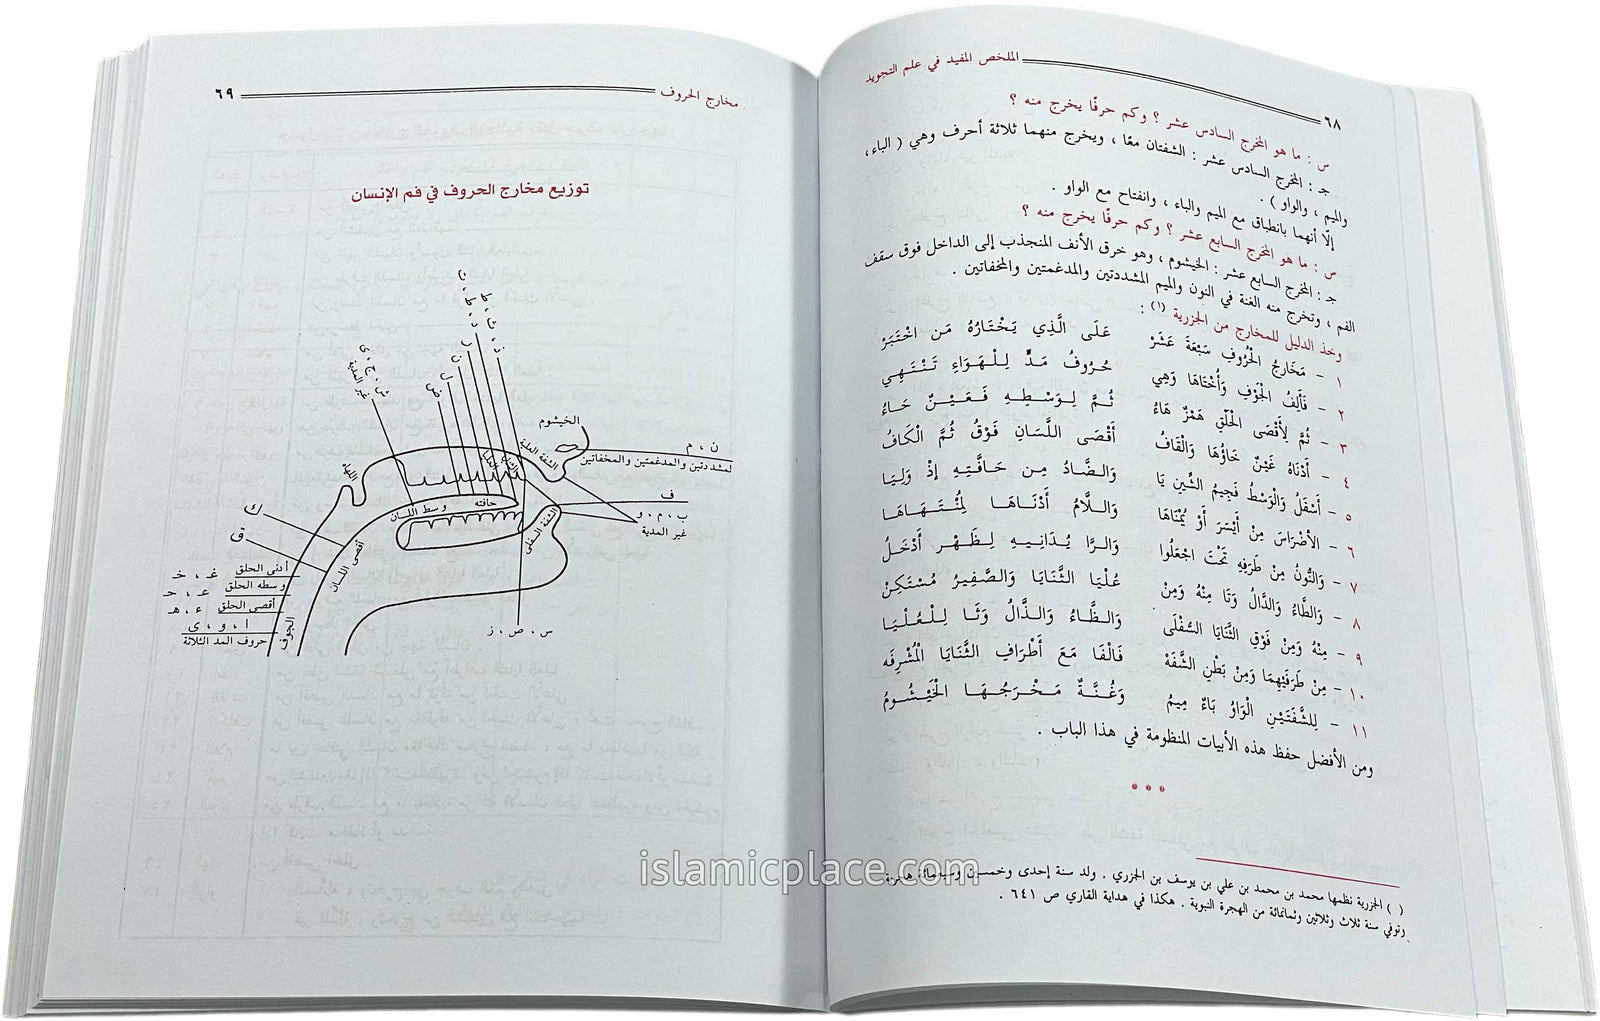 الملخص المفيد في علم التجويد
٦٨
س : ما هو المخرج السادس عشر ؟ وكم حرفًا يخرج منه ؟
جـ : المخرج السادس عشر : الشفتان معًا ، ويخرج منهما ثلاثة أحرف وهي ( الباء ،
والميم ، والواو ) .
إلّا أنهما بانطباق مع الميم والباء ، وانفتاح مع الواو .
س : ما هو المخرج السابع عشر ؟ وكم حرفًا يخرج منه ؟
جـ : المخرج السابع عشر : الخيشوم ، وهو خرق الأنف المنجذب إلى الداخل فوق سقف
الفم ، وتخرج منه الغنة في النون والميم المشددتين والمدغمتين والمخفاتين .
وخذ الدليل للمخارج من الجزرية (١) :
١ - مَخَارِجُ الْحُرُوفِ سَبْعَةَ عَشَرْ عَلَى الَّذِي يَخْتَارُهُ مَنِ اخْتَبَرْ
٢ - فَأَلِفُ الْجَوْفِ وَأُخْتَاهَا وَهِي حُرُوفُ مَدٍّ لِلْهَوَاءِ تَنْتَهِي
٣ - ثُمَّ لِأَقْصَى الْحَلْقِ هَمْزٌ هَاءُ ثُمَّ لِوَسْطِهِ فَعَيْنٌ حَاءُ
٤ - أَدْنَاهُ غَيْنٌ خَاؤُهَا وَالْقَافُ أَقْصَى اللِّسَانِ فَوْقُ ثُمَّ الْكَافُ
٥ - أَسْفَلُ وَالْوَسْطُ فَجِيمُ الشِّينِ يَا وَالضَّادُ مِنْ حَافَتِهِ إِذْ وَلِيَا
٦ - الْأَضْرَاسَ مِنْ أَيْسَرَ أَوْ يُمْنَاهَا وَاللَّامُ أَدْنَاهَا لِمُنْتَهَاهَا
٧ - وَالنُّونُ مِنْ طَرَفِهِ تَحْتَ اجْعَلُوا وَالرَّا يُدَانِيهِ لِظَهْرٍ أَدْخَلُ
٨ - وَالطَّاءُ وَالدَّالُ وَتَا مِنْهُ وَمِنْ عُلْيَا الثَّنَايَا وَالصَّفِيرُ مُسْتَكِنْ
٩ - مِنْهُ وَمِنْ فَوْقِ الثَّنَايَا السُّفْلَى وَالظَّاءُ وَالذَّالُ وَثَا لِلْعُلْيَا
١٠ - مِنْ طَرَفَيْهِمَا وَمِنْ بَطْنِ الشَّفَهْ فَالْفَا مَعَ أَطْرَافِ الثَّنَايَا الْمُشْرِفَه
١١ - لِلشَّفَتَيْنِ الْوَاوُ بَاءٌ مِيمُ وَغُنَّةٌ مَخْرَجُهَا الْخَيْشُومُ
ومن الأفضل حفظ هذه الأبيات المنظومة في هذا الباب .
( ) الجزرية نظمها محمد بن محمد بن علي بن يوسف بن الجزري . ولد سنة إحدى وخمسين وسبعمائة هجرية
وتوفي سنة ثلاث وثلاثين وثمانمائة من الهجرة النبوية . هكذا في هداية القاري ص ٦٤١ .
مخارج الحروف
٦٩
توزيع مخارج الحروف في فم الإنسان
ذ ، ث ، ظ
د ، ط ، ت
ر
ن
ل
ض
ش ، ج ، ى
غير المدية
الخيشوم
ن ، م
لمشددتين والمدغمتين والمخفاتين
الشفة العليا
اللهاة
ف
ب ، م ، و
غير المدية
حافته
وسط اللسان
الشفة السفلى
ك
ق
أقصى اللسان
أدنى الحلق غـ ، خـ
وسطه الحلق عـ ، حـ
أقصى الحلق ء ، هـ
ا ، و ، ي
حروف المد الثلاثة
الجوف
س ، ص ، ز
islamicplace.com